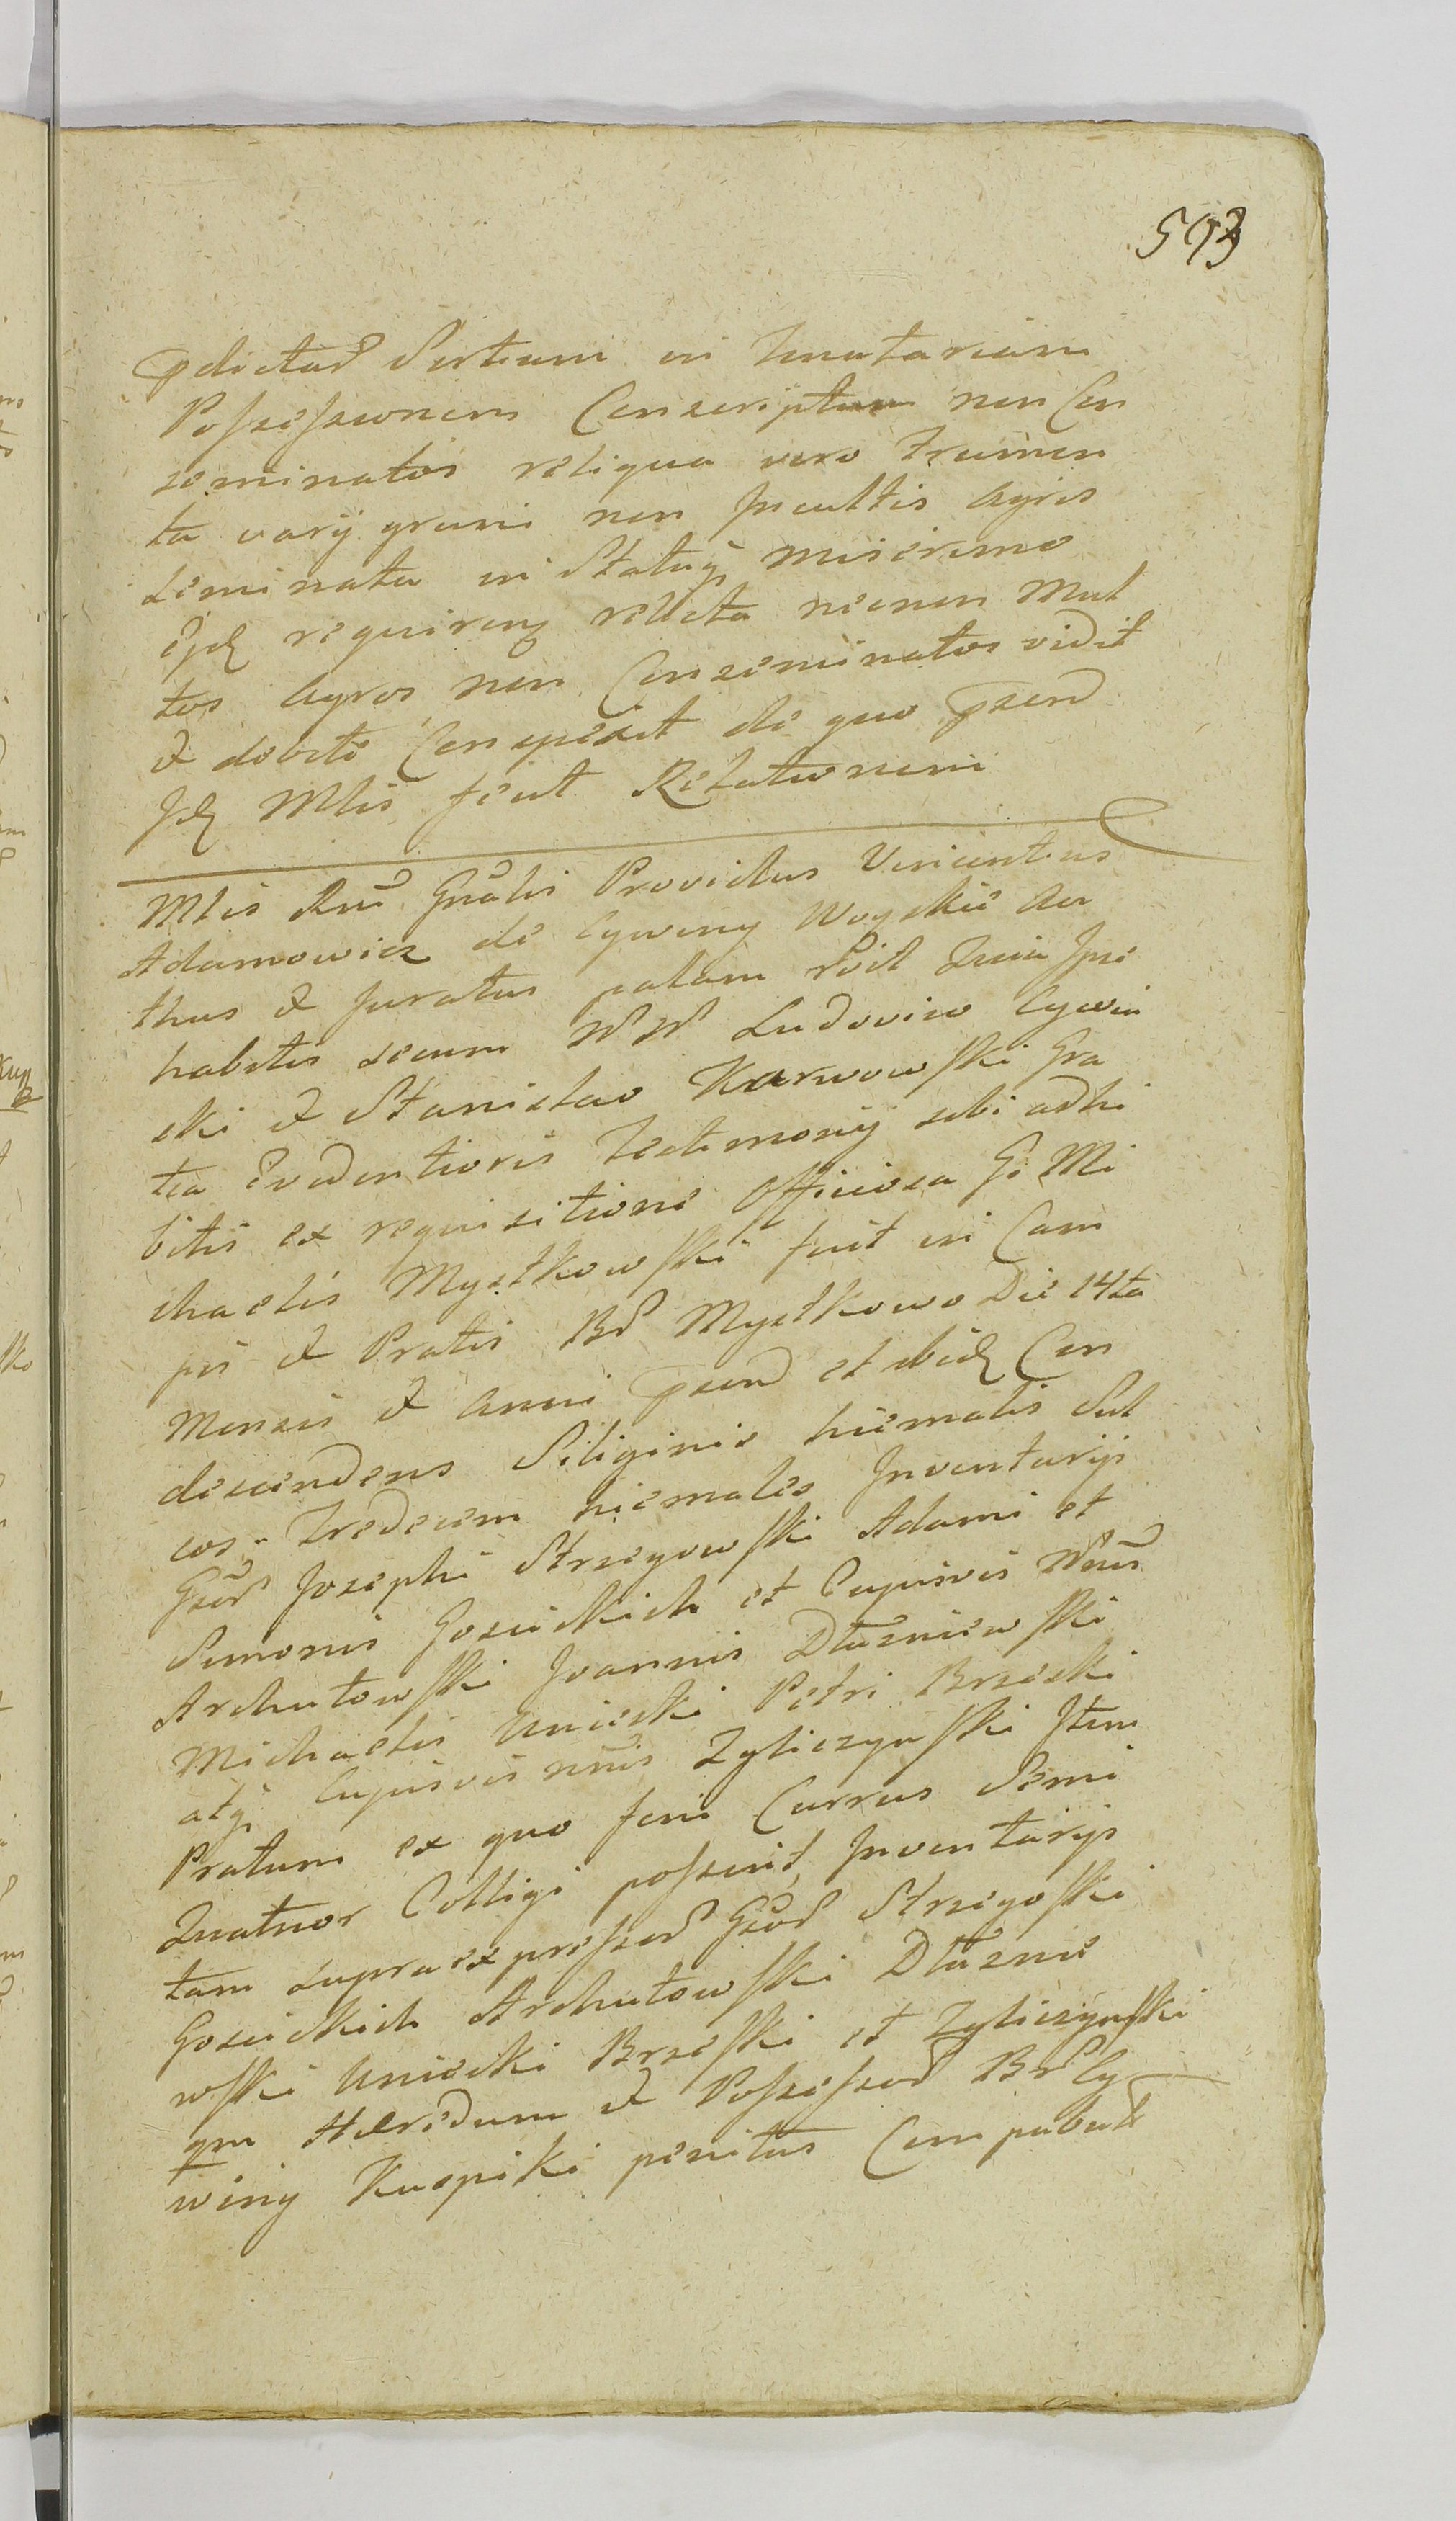 593
pdictar Sortium in Tenutariam
Possessionem Conscriptum non Con
seminatos reliqua vero Frumen
ta varij grani non Incultis Agris
seminata in Statuq miserimo
relicta necnon Mul
tos Agros non Conseminatos vidit
& debite Conspexit de quo psen
Id Mlis fecit Relationem
Mlis Rni Gnalis Providus Vincentius
Adamowicz de Cywiny Woyskie Au
thus & Juratus palam rCvit Quia Ipse
habitis secum NN Ludovico Cywin
ski & Stanislao Karwowski Gra
tia Evidentioris Testimonij sibi adhi
bitis ex requisitione Officiosa G. Mi
chaelis Mystkowski fuit in Cam
pis & Pratis Br Mystkowo Die 14ta
Mensis & Anni psen et ibid Con
descendens Siliginis hiemalis Sul
cos Tredecem hiemales Inventarijs
Gsor Josephi Strzegowski Adami et
Simonis Goscickich et Cujusvis Nnis
Archutowski Joannis Dłuzniewski
Michaelis Unieski Petri Brzeski
atq Cujusvis nnis Zgliczynski Item
Pratum ex quo feni Currus Semi
Quatuor Colligi possunt, Inventarijs
tam supra expressor Gsor Strzegoski
Gosickich Archutowski Dłuznie
wski Unieski Brzeski et Zgliczynski
qm Haeredum & Possessor Br Cy
winy Kuspiki penitus Compabul